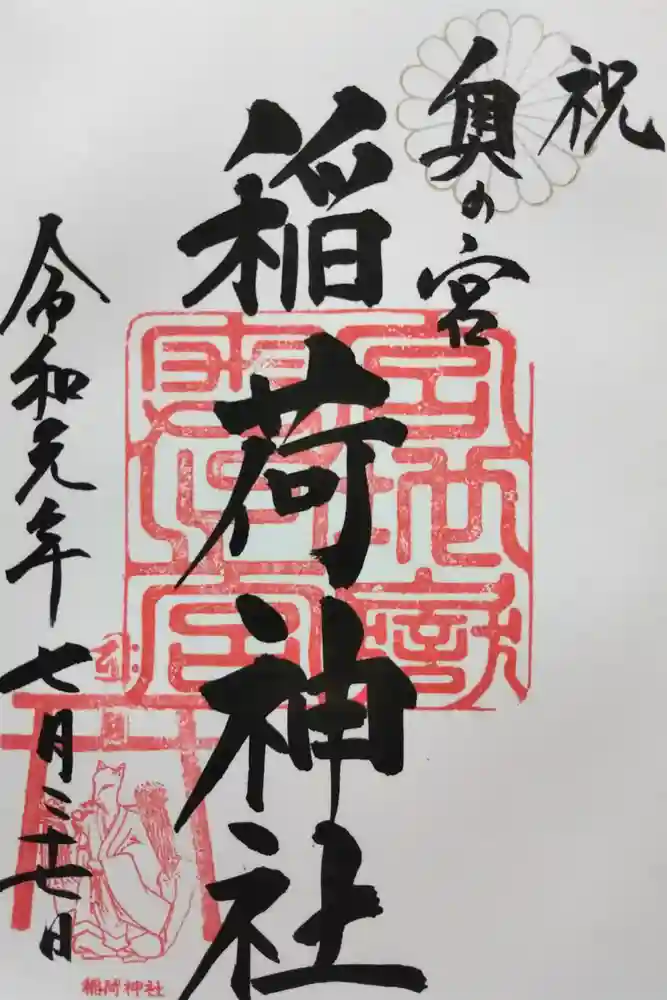 祝
奥の宮
稲荷神社
令和元年
七月二十七日
稲荷神社